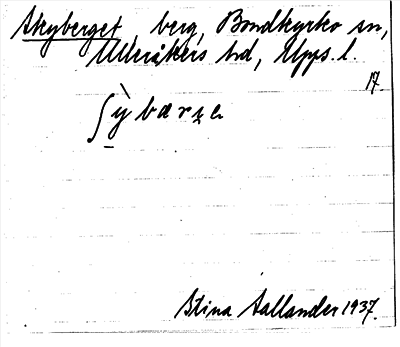 Skyberget, berg, Bondkyrko sn,
Ulleråkers hd, Upps. l.
17.
ʃỳbærɛ
Stina Sallander 1937.